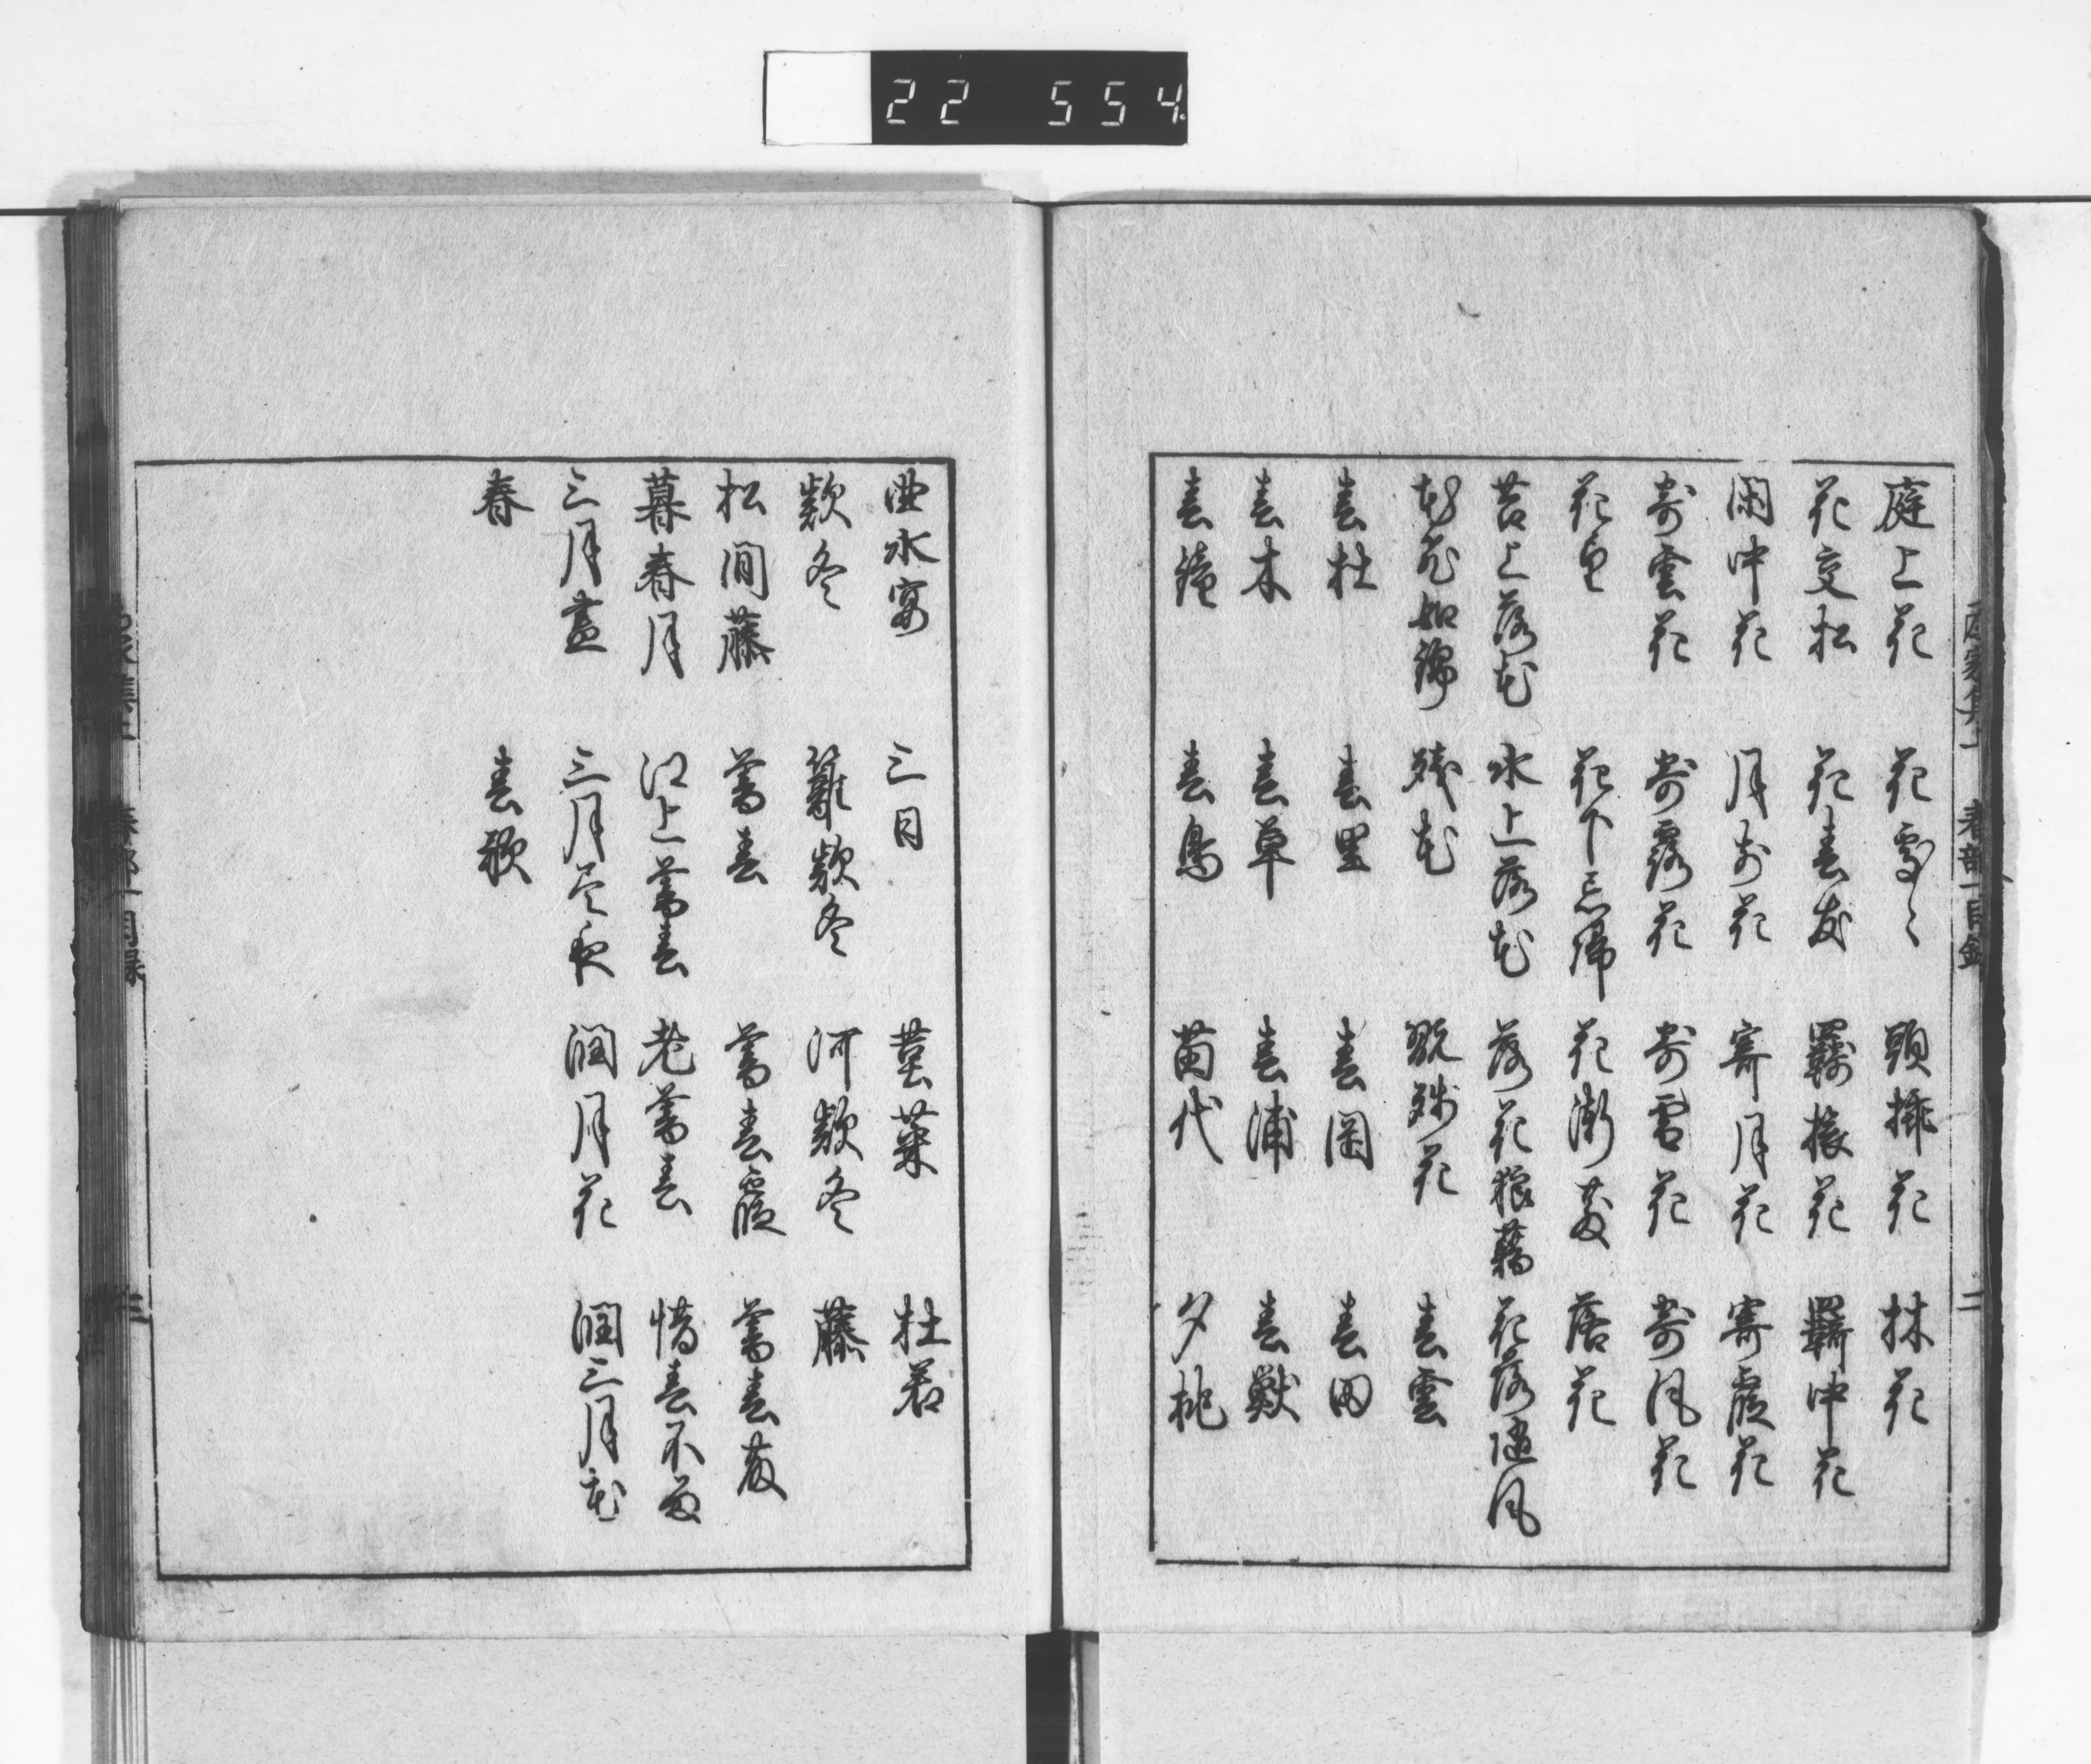 22 554
庭上花 花處〻 頭挿花 林花
花交松 花春友 羈旅花 羈中花
閑中花 月前花 寄月花 寄霞花
寄雲花 寄露花 寄雪花 寄風花
花 花下忘帰 花漸散 落花
苔上落花 水上落花 落花狼藉 花落随風
花如錦 残花 翫残花 春雲
春杜 春里 春岡 春田
春木 春草 春浦 春獣
春 春鳥 苗代 夕桃
曲水宴 三日 菫菜 杜若
欵冬 籬欵冬 河欵冬 藤
松間藤 暮春 暮春霞 暮春
暮春月 江上暮春 老暮春 惜春不留
三月盡 三月尽夜 閏月花 閏三月花
春 春歌
春部一目録 三